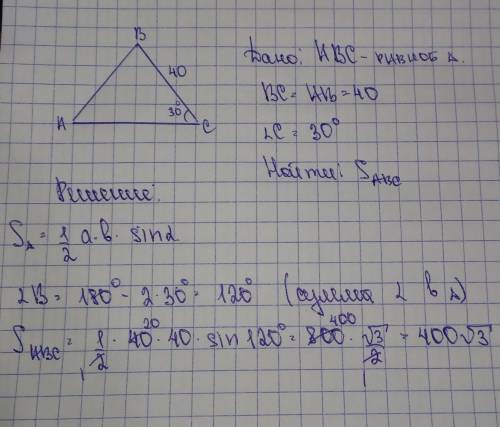 B
40
30°
A
C
Дано: ABC - равноб Δ.
BC = AB = 40
∠C = 30°
Найти: S_ABC
Решение:
S_Δ = 1/2 a·b·sinα
∠B = 180° - 2·30° = 120° (сумма ∠ в Δ)
S_ABC = 1/2 · 40 20 · 40 · sin 120° = 800 400 · √3/2 = 400√3